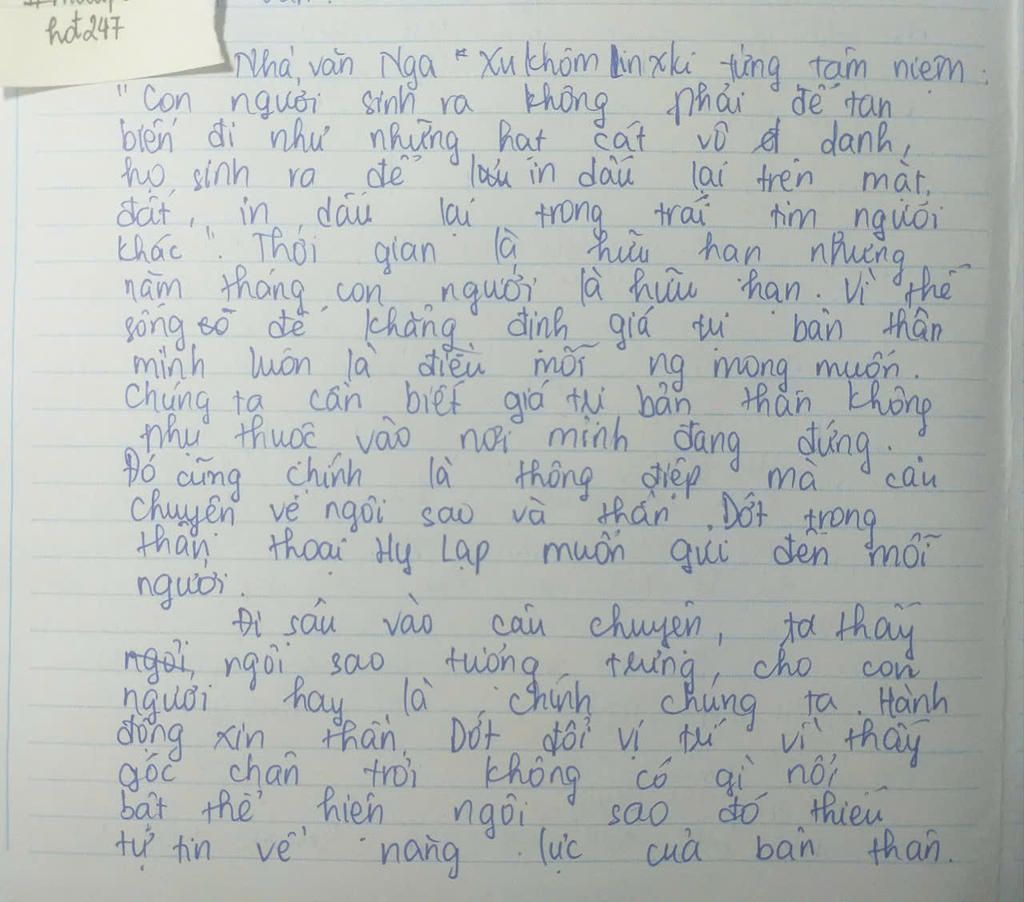 hot247
Nhà văn Nga Xukhômlinxki từng tâm niệm:
"Con người sinh ra không phải để tan
biến đi như những hạt cát vô danh,
họ sinh ra để in dấu lại trên mặt
đất, in dấu lại trong trái tim người
khác". Thời gian là hữu hạn nhưng
năm tháng con người là hữu hạn. Vì thế
sống để khẳng định giá trị bản thân
mình luôn là điều mỗi ng mong muốn.
Chúng ta cần biết giá trị bản thân không
phụ thuộc vào nơi mình đang đứng.
Đó cũng chính là thông điệp mà câu
chuyện về ngôi sao và thần Dớt trong
thần thoại Hy Lạp muốn gửi đến mỗi
người.
Đi sâu vào câu chuyện, ta thấy
ngôi sao tượng trưng cho con
người hay là chính chúng ta. Hành
động xin thần Dớt đổi vị trí vì thấy
góc chân trời không có gì nổi
bật thể hiện ngôi sao đó thiếu
tự tin về năng lực của bản thân.